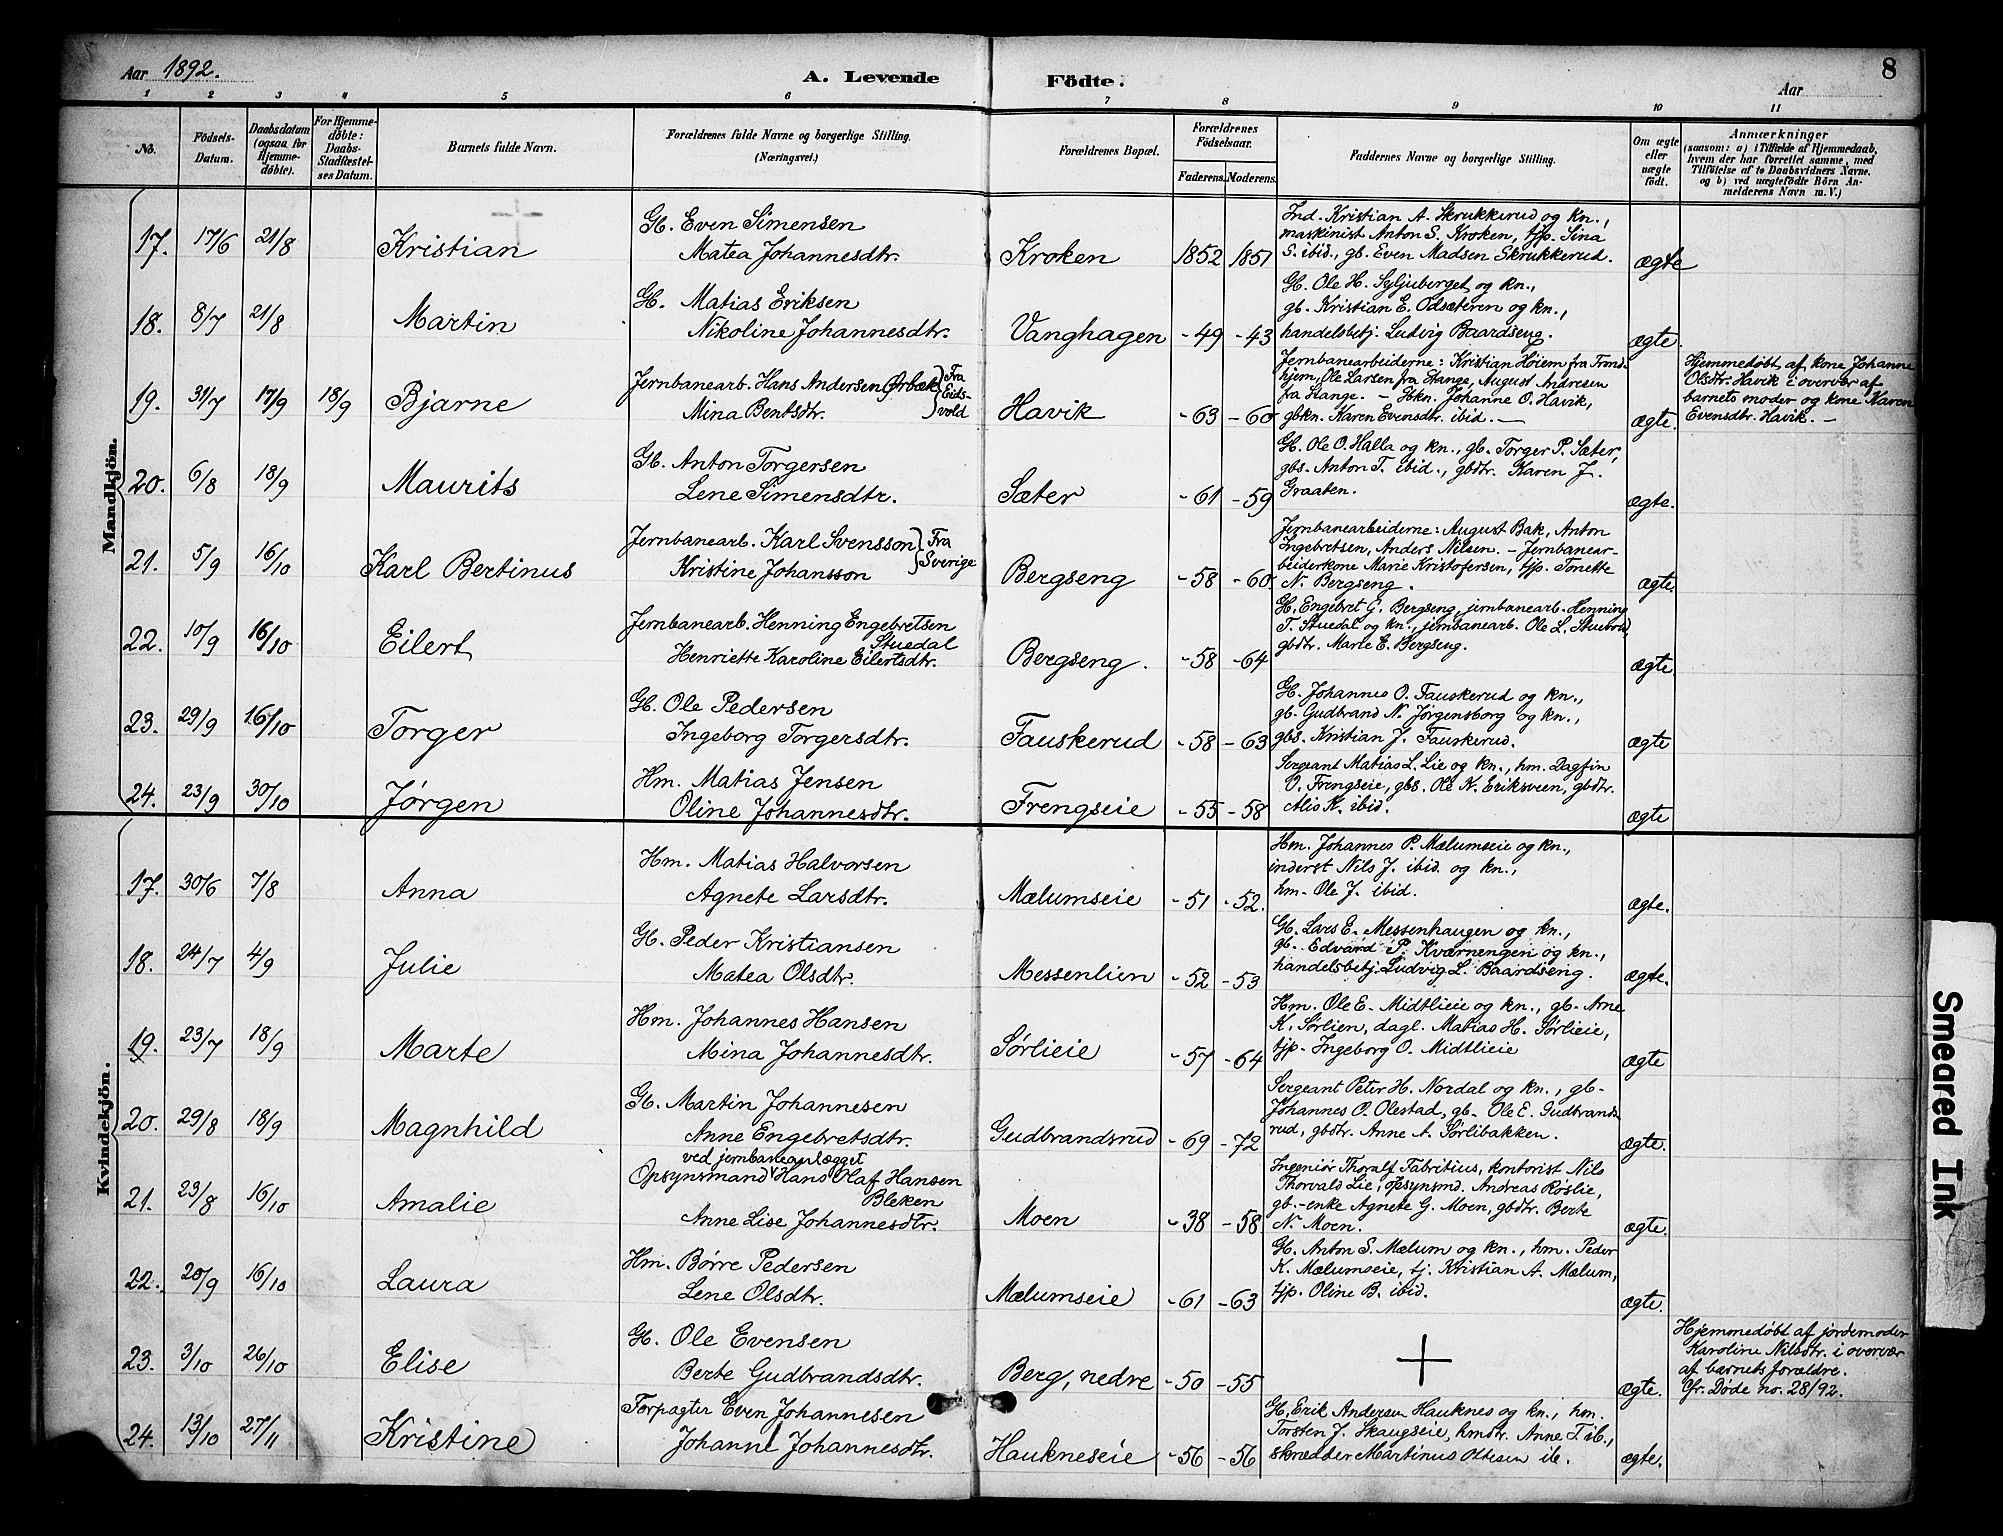 Aar 1892.
A. Levende
Födte.
8
Aar
1 2 3 4 5 6 7 8 9 10 11
No.
Födsels-Datum.
Daabsdatum (ogsaa for Hjemmedøbte).
For Hjemmedøbte: Daabs-Stadfæstelses Datum.
Barnets fulde Navn.
Forældrenes fulde Navne og borgerlige Stilling.
(Næringsvei.)
Forældrenes Bopæl.
Forældrenes Födselsaar.
Faderens. Moderens.
Faddernes Navne og borgerlige Stilling.
Om ægte eller uægte födt.
Anmærkninger
(saasom: a) i Tilfælde af Hjemmedaab, hvem der har forrettet samme, med Tilføielse af to Daabsvidners Navne. og b) ved uægtefödte Börn Anmelderens Navn m. V.)
Mandkjön.
17. 17/6 21/8 Kristian
Gb. Even Simensen
Matea Johannesdtr.
Kroken 1852 1851
Ind. Kristian A. Skrukkerud og kn.,
maskinist Anton S. Kroken, tjp. Sina
S. ibid., gb. Even Madsen Skrukkerud.
ægte
18. 8/7 21/8 Martin
Gb. Matias Eriksen
Nikoline Johannesdtr.
Vanghagen -49 -43
Gb. Ole H. Syljuberget og kn.,
gb. Kristian E. Odsæteren og kn.,
handelsbetj. Ludvig Baardseng.
ægte.
19. 31/7 17/9 18/9 Bjarne
Jernbanearb. Hans Andersen Ørbæk
Mina Bentsdtr.
Fra Eidsvold
Havik -63 -60
Jernbanearbeiderne: Kristian Høiem fra Trondhjem, Ole Larsen fra Stange, August Andresen
fra Stange. - Gbkn. Johanne O. Havik,
gbkn. Karen Evensdtr. ibid. -
ægte.
Hjemmedøbt af kone Johanne
Olsdtr. Havik i overvær af
barnets moder og kone Karen
Evensdtr. Havik. -
20. 6/8 18/9 Maurits
Gb. Anton Torgersen
Lene Simensdtr.
Sæter -61 -59
Gb. Ole O. Halla og kn., gb. Torger P. Sæter,
gbs. Anton T. ibid., gbdtr. Karen J.
Graaten.
ægte.
21. 5/9 16/10 Karl Bertinus
Jernbanearb. Karl Svensson
Kristine Johansson
Fra Sverige
Bergseng -58 -60
Jernbanearbeiderne: August Bak, Anton
Ingebretsen, Anders Nilsen. - Jernbanear-
beiderkone Marie Kristofersen, tjp. Tonette
N. Bergseng.
ægte.
22. 10/9 16/10 Eilert
Jernbanearb. Henning Engebretsen
Stuedal
Henriette Karoline Eilertsdtr.
Bergseng. -58 -64
Gb. Engebret G. Bergseng, jernbanearb. Henning
T. Stuedal og kn., jernbanearb. Ole L.
gbdtr. Marie E. Bergseng.
ægte
23. 29/9 16/10 Torger
Gb. Ole Pedersen
Ingeborg Torgersdtr.
Fauskerud -58 -63
Gb. Johannes O. Fauskerud og kn.,
gb. Gudbrand N. Jørgensborg og kn.,
gbs. Kristian J. Fauskerud.
ægte
24. 23/9 30/10 Jørgen
Hm. Matias Jensen
Oline Johannesdtr.
Frengseie -55 -58
Sergeant Matias L. Lie og kn., hm. Dagfin
O. Frengseie, gbs. Ole N. Eriksveen, gbdtr.
K. ibid.
ægte
Kvindekjön.
17. 30/6 7/8 Anna
Hm. Matias Halvorsen
Agnete Larsdtr.
Mælumseie -51 -52.
Hm. Johannes P. Mælumseie og kn.,
inderst Nils J. ibid. og kn.,
hm. Ole J. ibid.
ægte.
18. 24/7 4/9 Julie
Gb. Peder Kristiansen
Matea Olsdtr.
Messenlien -52 -53
Gb. Lars E. Messenhaugen og kn.,
gb. Edvard P. Kværnengen og kn.,
handelsbetj. Ludvig L. Baardseng.
ægte.
19. 23/7 18/9 Marte
Hm. Johannes Hansen
Mina Johannesdtr.
Sørlieie -57 -64
Hm. Ole E. Midtlieie og kn., gb. Arne
K. Sørlien, dagl. Matias H. Sørlieie,
tjp. Ingeborg O. Midtlieie
ægte
20. 29/8 18/9 Magnhild
Gb. Martin Johannesen
Anne Engebretsdtr.
Gudbrandsrud -69 -72
Sergeant Peter H. Nordal og kn., gb.
Johannes O. Olestad, gb. Ole E. Gudbrands-
rud, gbdtr. Anne A. Sørlibakken.
ægte.
21. 23/8 16/10 Amalie
ved jernbaneanlægget
Opsynsmand Hans Olaf Hansen
Bleken
Anne Lise Johannesdtr.
Moen -38 -58.
Ingeniør Thoralf Fabritius, kontorist Nils
Thorvald Lie, opsynsmd. Andreas Røslie,
gb.-enke Agnete G. Moen, gbdtr. Berte
N. Moen.
ægte.
22. 20/9 16/10 Laura
Hm. Børre Pedersen
Lene Olsdtr.
Mælumseie -61 -63
Gb. Anton S. Mælum og kn., hm. Peder
K. Mælumseie, tj. Kristian A. Mælum,
tjp. Oline B. ibid.
ægte.
23. 3/10 26/10 Elise
Gb. Ole Evensen
Berte Gudbrandsdtr.
Berg, nedre -50 -55
ægte.
Hjemmedøbt af jordemoder
Karoline Nilsdtr. i overvær
af barnets forældre.
Cfr. Døde no. 28/92.
24. 13/10 27/11 Kristine
Forpagter Even Johannesen
Johanne Johannesdtr.
Haukneseie -56 -56
Gb. Erik Andersen Hauknes og kn., hm.
Torsten J. Skaugseie, hmdtr. Anne T. ib.,
skrædder Martinus Ottesen ib.
ægte.
Smeared Ink